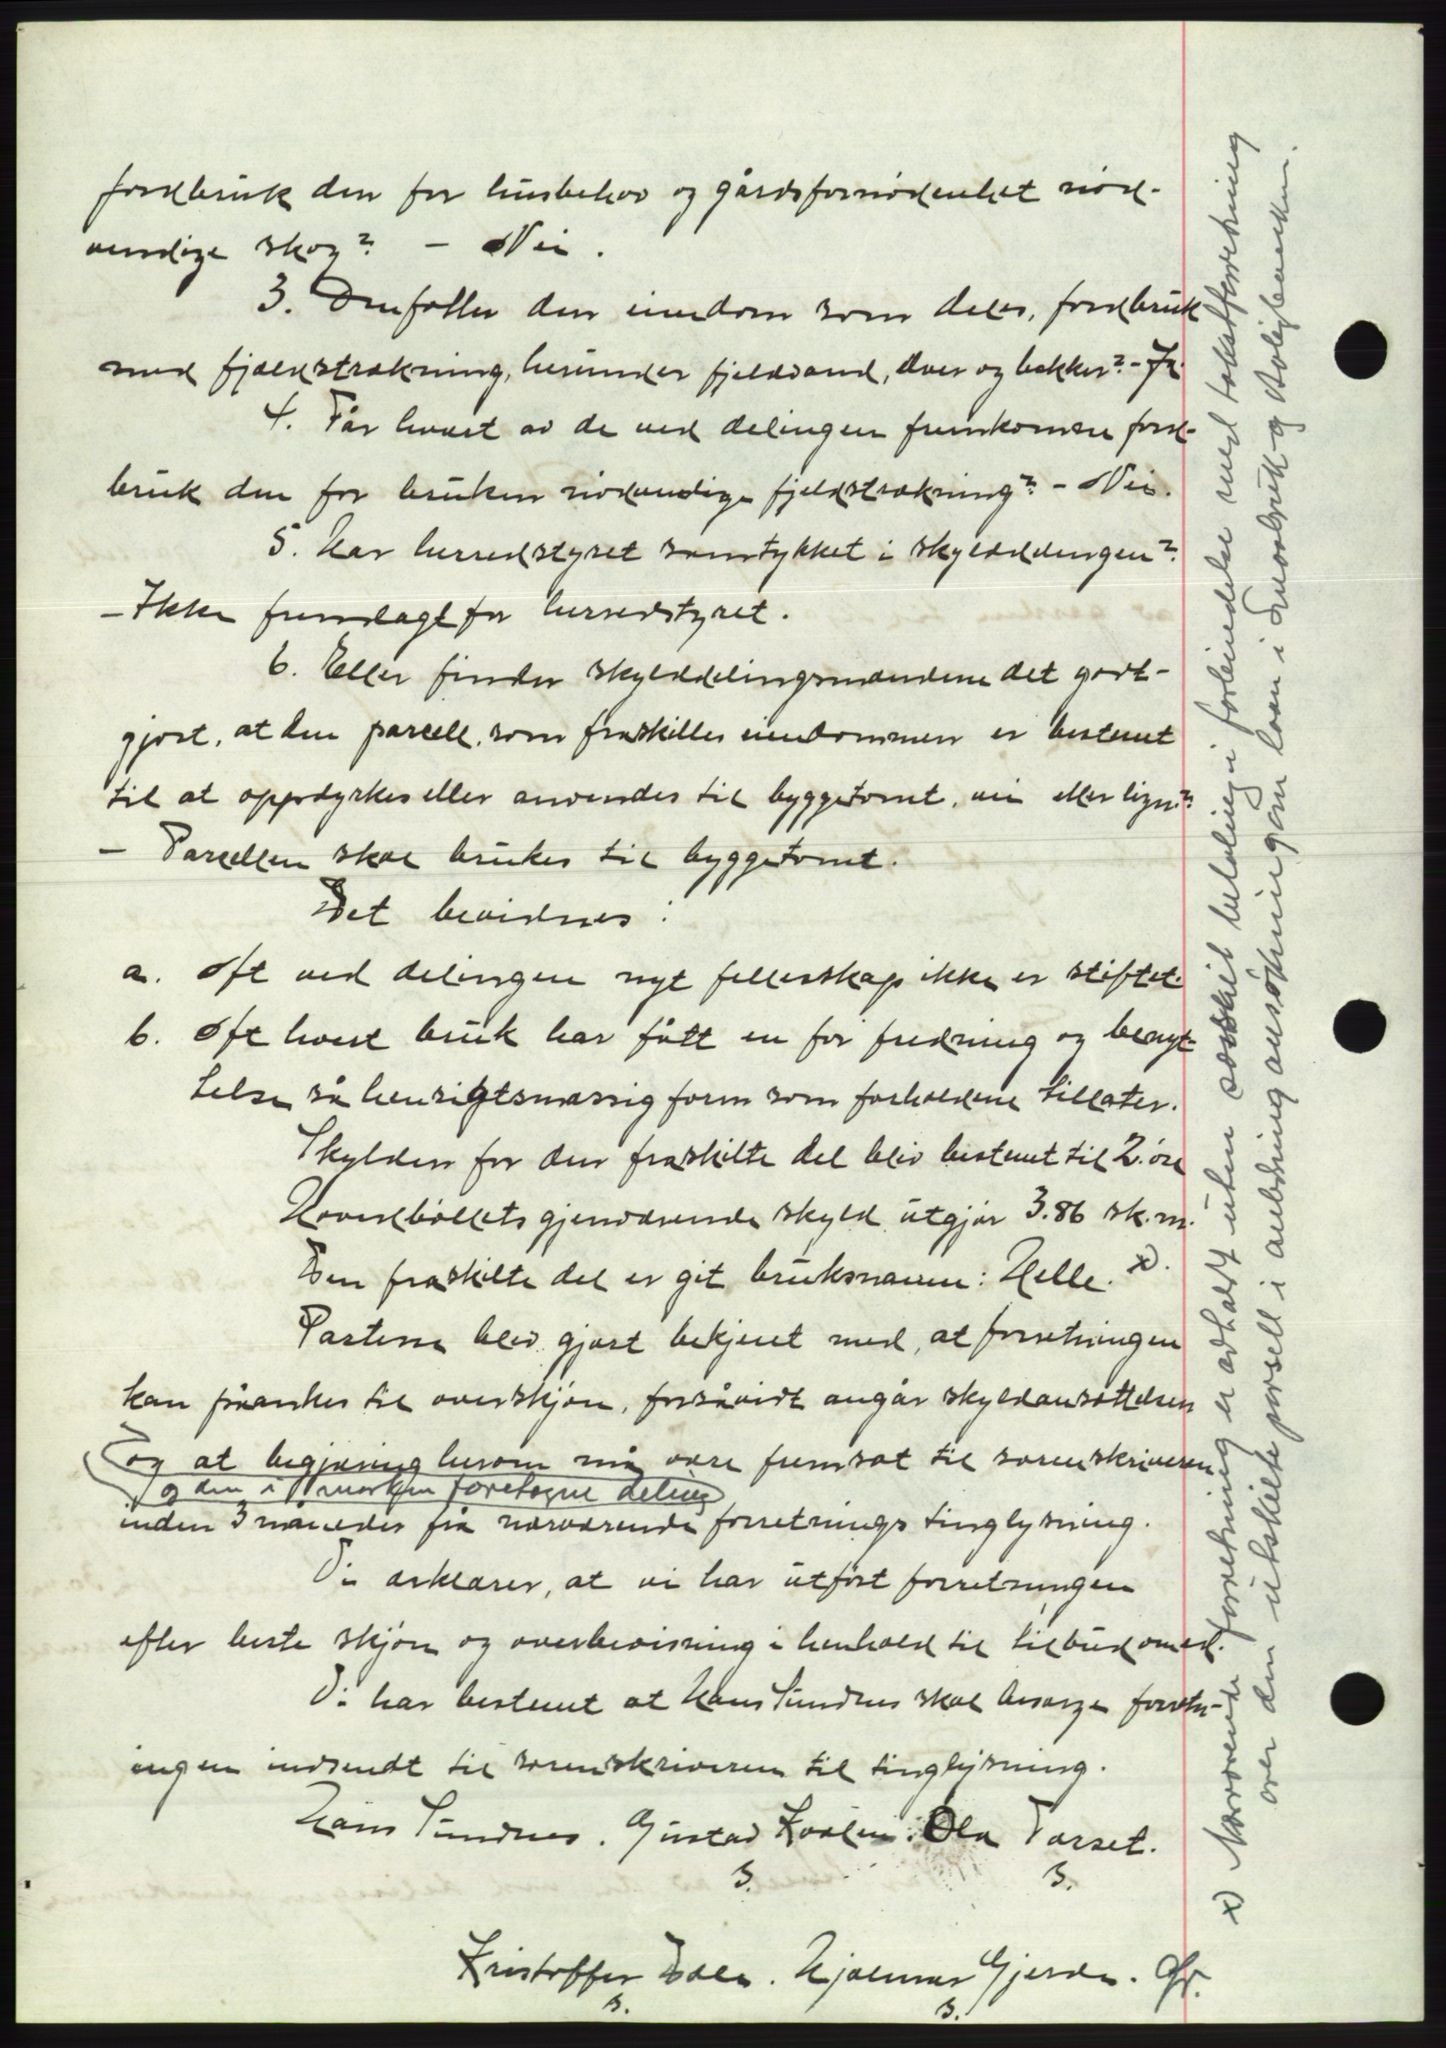 jordbruk den for husbehov og gårdsfornødenhet nød-
vendige skog? - Nei.
3. Omfatter den eiendom som deles, jordbruk
med fjeldstrækning, herunder fjeldvand, elver og bekker? - Ja.
4. Får hvert av de ved delingen fremkomne jord-
bruk den for bruken nødvendige fjeldstrækning? - Nei.
5. Har herredstyret samtykket i skylddelingen?
- Ikke fremlagt for herredstyret.
6. Eller finder skylddelingsmændene det godt-
gjort, at den parcell, som fraskilles eiendommen er bestemt
til at oppdyrkes eller anvendes til byggetomt, vei eller lign?
- Parcellen skal brukes til byggetomt.
Det bevidnes:
a. At ved delingen nyt fellesskap ikke er stiftet.
b. At hvert bruk har fått en for fredning og benyt-
telse så hensigtsmæssig form som forholdene tillater.
Skylden for den fraskilte del blev bestemt til 2 øre
Hovedbølets gjenværende skyld utgjør 3.86 sk.m.
Den fraskilte del er git bruksnavn: Helle. x)
Partene blev gjort bekjent med, at forretningen
kan påankes til overskjøn, forsåvidt angår skyldansættelsen
og at begjæring herom må være fremsat til sorenskriveren
og den i marken foretagne deling
inden 3 måneder fra nærværende forretnings tinglysning.
Vi erklærer, at vi har utført forretningen
efter beste skjøn og overbevisning i henhold til tilbud om ed.
Vi har bestemt at Hans Sundnes skal besørge forretn-
ingen indsendt til sorenskriveren til tinglysning.
Hans Sundnes. Gustav Kvalen. Ola Farset.
s. s.
Kristoffer Dale. Hjalmar Gjerde.
s. s.
x) Nærværende forretning er avholdt uten særskilt betaling i forbindelse med takstforretning
over den utskilte parsell i anledning ansøkning om laan i Småbruk- og Boligbanken.